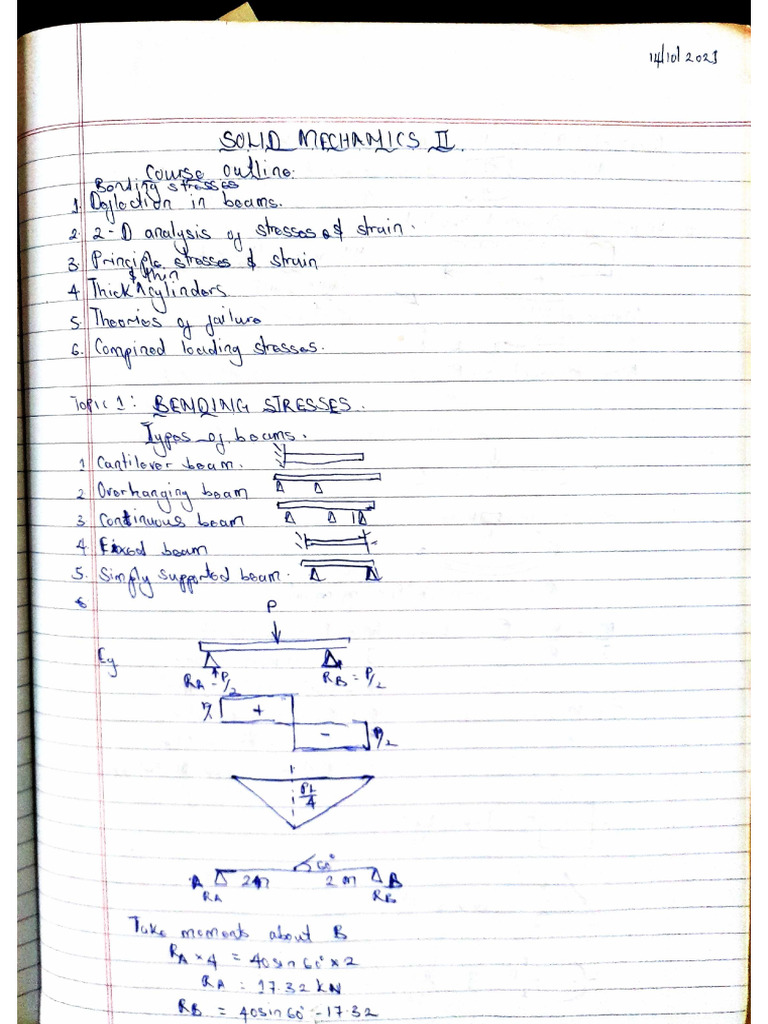 14/10/2023
SOLID MECHANICS II.
Course Outline.
Bending stresses
1. Deflection in beams.
2. 2-D analysis of stresses & strain.
3. Principle stresses & strain
& thin
4 Thick ^ cylinders
5. Theories of failure
6. Compined loading stresses.
Topic 1: BENDING STRESSES.
Types of beams.
1 Cantilever beam.
2 Overhanging beam
3 Continuous beam
4. Fixed beam
5. Simply supported beam.
6
P
Eg
RA = P/2 RB = P/2
P/2 +
- P/2
PL/4
60°
A 2m 2m B
RA RB
Take moments about B
RA × 4 = 40sin60° × 2
RA = 17.32 kN
RB = 40sin60° - 17.32